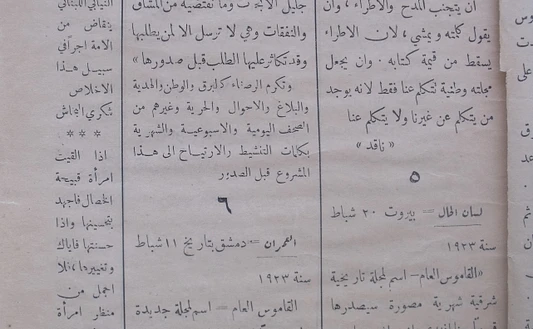 ان يتجنب المدح والاطراء ، وان
يقول كلمته ويمشي ، لان الاطراء
يسقط من قيمة كتابه . وان يجعل
مجلته وطنية لتكلم عنا فقط لانه يوجد
من يتكلم عن غيرنا ولا يتكلم عنا
« ناقد »
٥
لسان الحال – بيروت ٢٠ شباط
سنة ١٩٢٣
«القاموس العام – اسم لمجلة تاريخية
شرقية شهرية مصورة سيصدرها
جليل الابحاث وما تقتضيه من المشاق
والنفقات وهي لا ترسل الا لمن يطلبها
وقد تكاثر عليها الطلب قبل صدورها »
وتكرم الرصفاء كالبرق والوطن والهدية
والبلاغ والاحوال والحرية وغيرهم من
الصحف اليومية والاسبوعية والشهرية
بكلمات التنشيط والارتياح الى هذا
المشروع قبل الصدور
٦
العمران – دمشق بتاريخ ١١ شباط
سنة ١٩٢٣
القاموس العام – اسم لمجلة جديدة
النيابي اللبناني
ينقاض من
الامة اجرًا في
سبيل هذا
الاخلاص
شكري الخماش
***
اذا القيت
امرأة قبيحة
الخصال فاجهد
بتحسينها واذا
حسنتها فاياك
وتغييرها، فلا
اجمل من
منظر امرأة